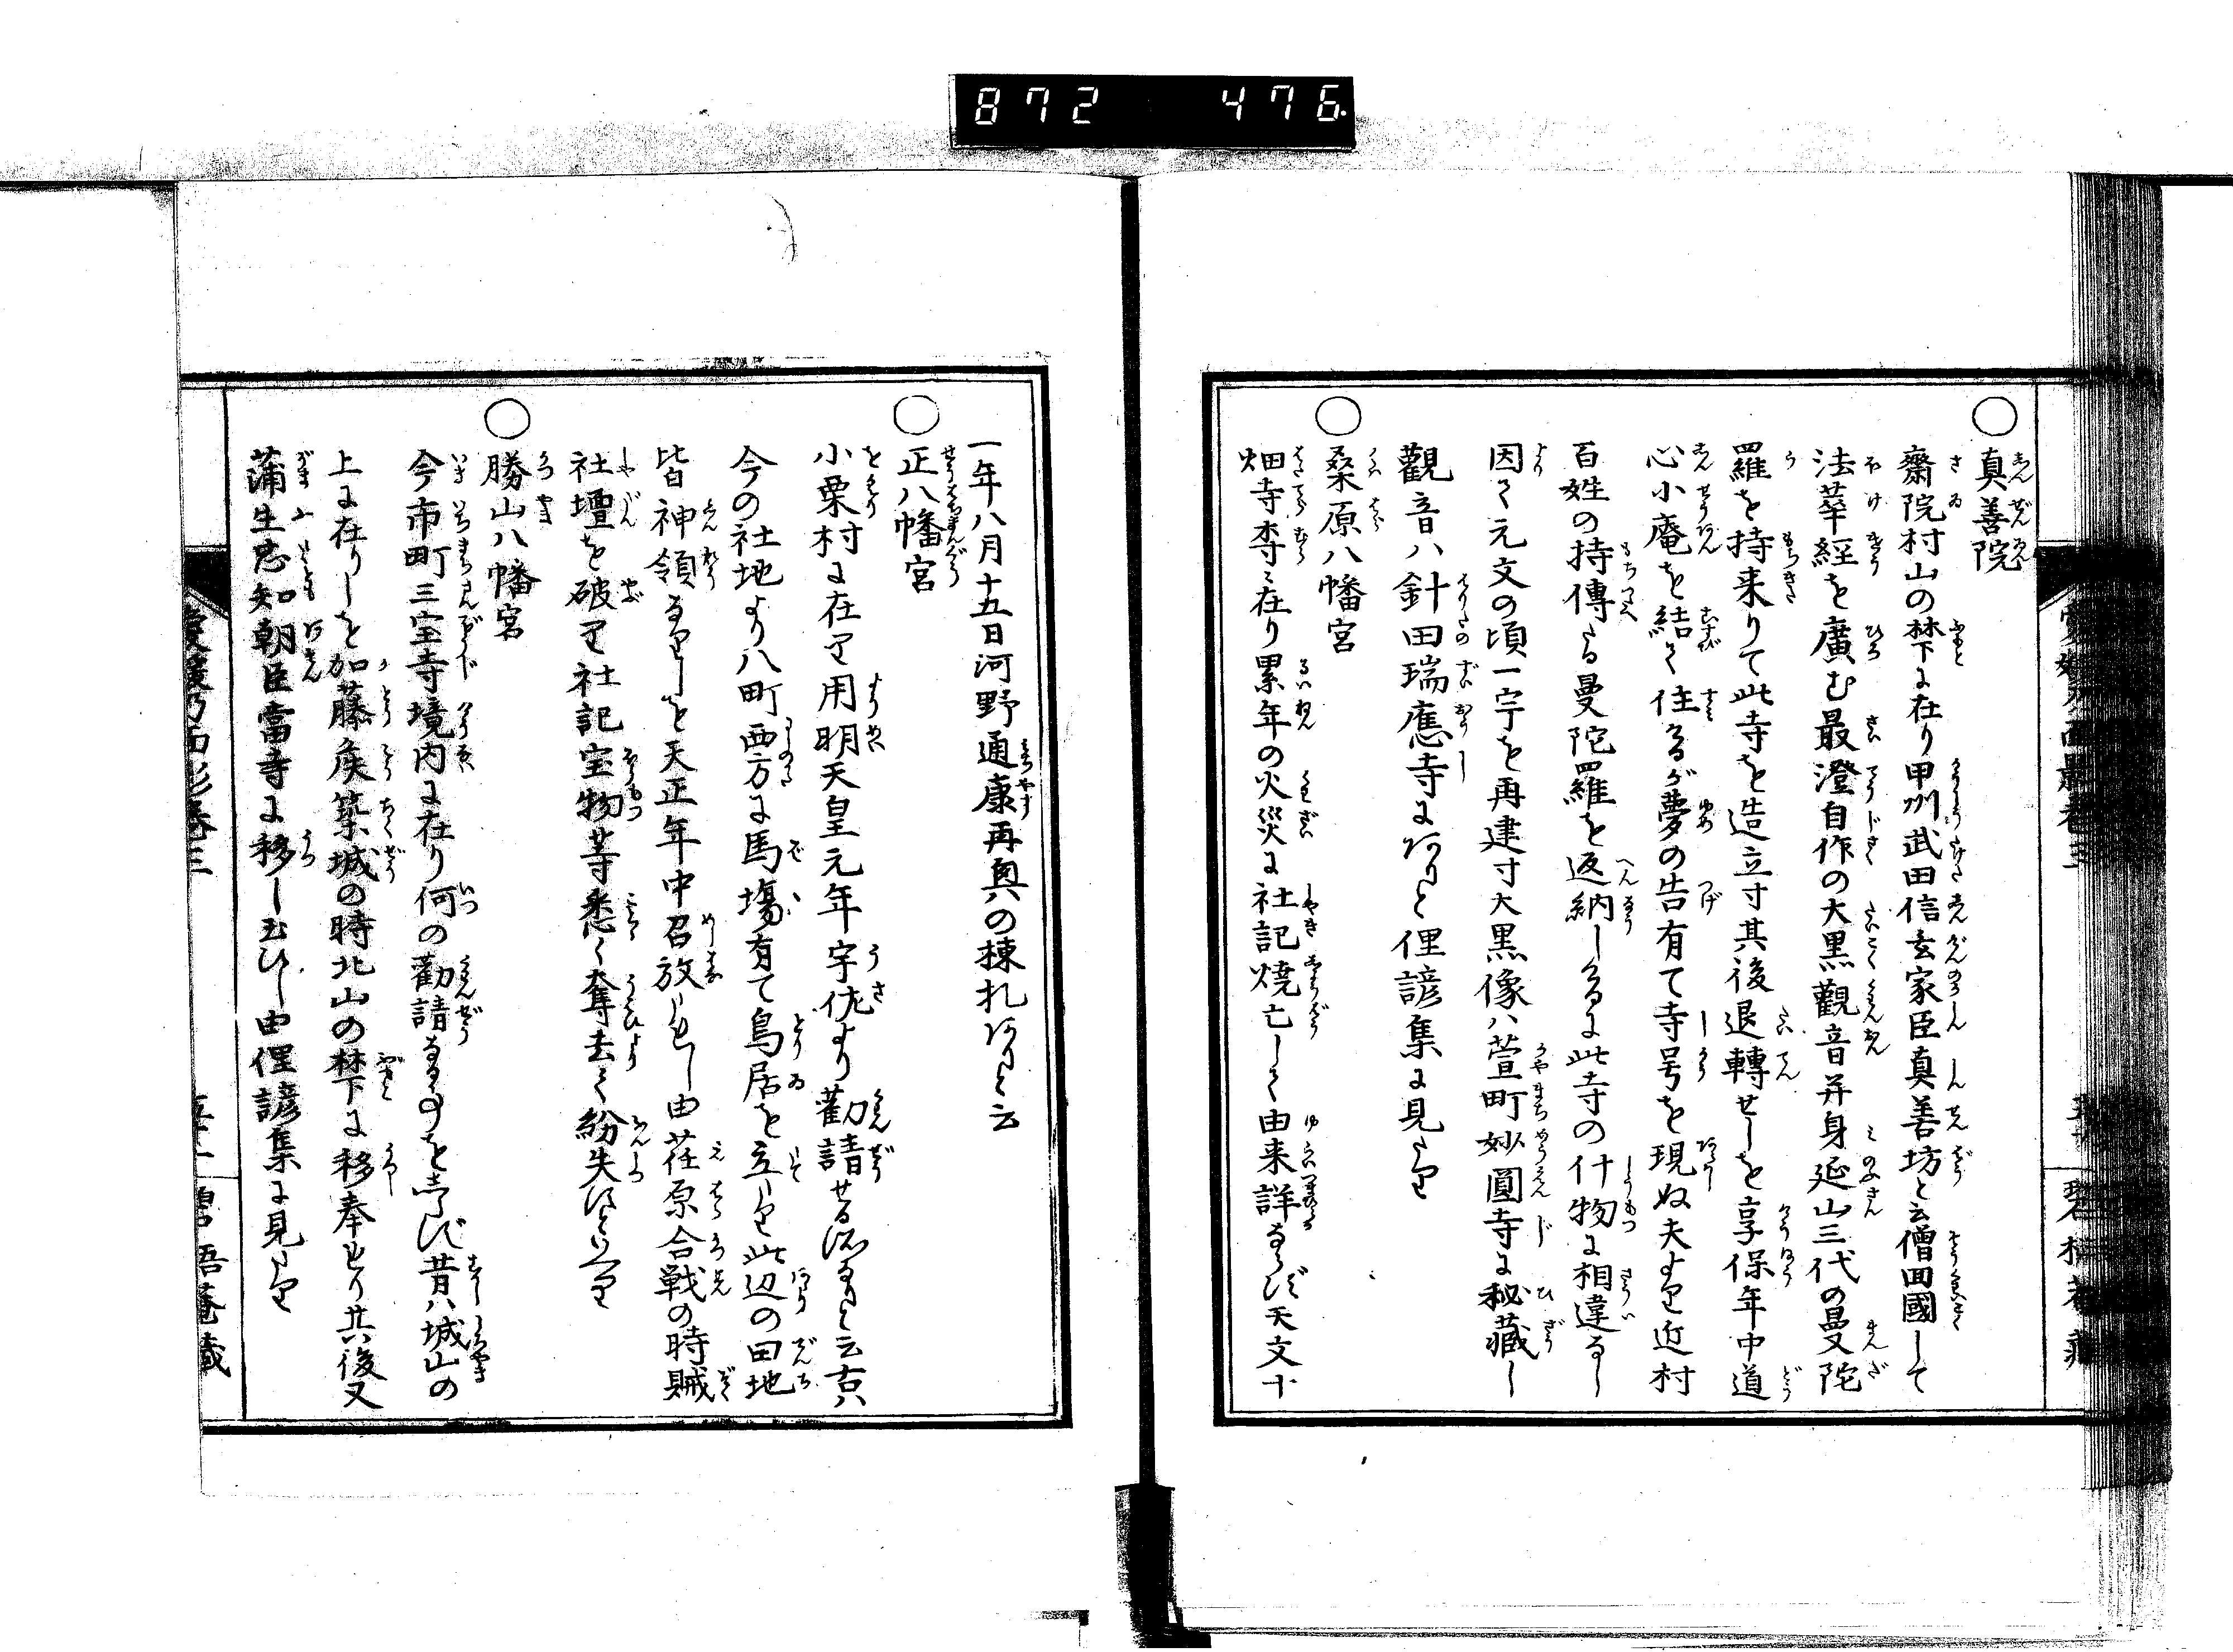 872 476
○真善院
齋院村山の禁下に在り甲州武田信玄家臣真善坊と云僧回國して
法華経を廣む最澄自作の大黒觀音并身延山三代の曼陀
羅を持来りて此寺を造立す其後退轉せしを享保年中道
心小庵を結て住るが夢の告有て寺号を現ぬ夫より近村
百姓の持傳る曼陀羅を返納しけるに此寺の什物に相違なし
因て元文の頃一宇を再建す大黒像ハ萱町妙圓寺に秘藏し
觀音ハ針田瑞應寺にありと俚諺集に見えたり
○桑原八幡宮
畑寺李に在り累年の火災に社記焼亡して由来詳ならず天文十
一年八月十五日河野通康再興の棟札ありと云
○正八幡宮
小栗村に在て用明天皇元年宇佐より勸請せる所なりと云古ハ
今の社地より八町西方に馬場有て鳥居を立たり此辺の田地
皆神領なりしを天正年中召放れし由荏原合戦の時賊
社壇を破て社記宝物等悉く奪去て紛失すといへり
○勝山八幡宮
今市町三宝寺境内に在り何の勸請なる事を志らず昔ハ城山の
上に在りしを加藤侯築城の時北山の禁下に移奉れり其後又
蒲生忠知朝臣當寺に移し玉ひし由俚諺集に見えたり
愛媛乃面影巻三
碧梧菴藏